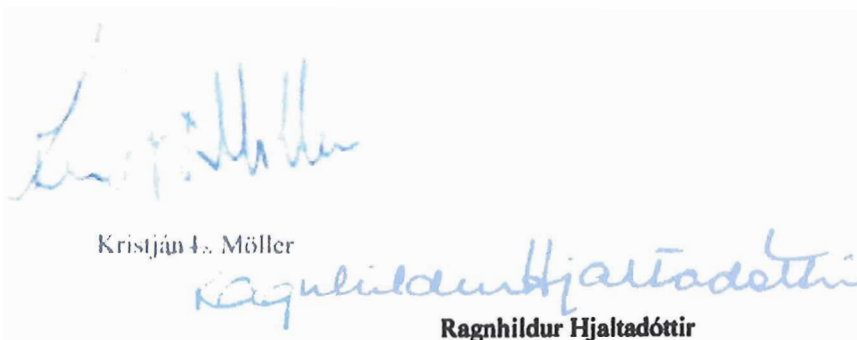 Kristján L. Möller
Ragnhildur Hjaltadóttir
Ragnhildur Hjaltadóttir